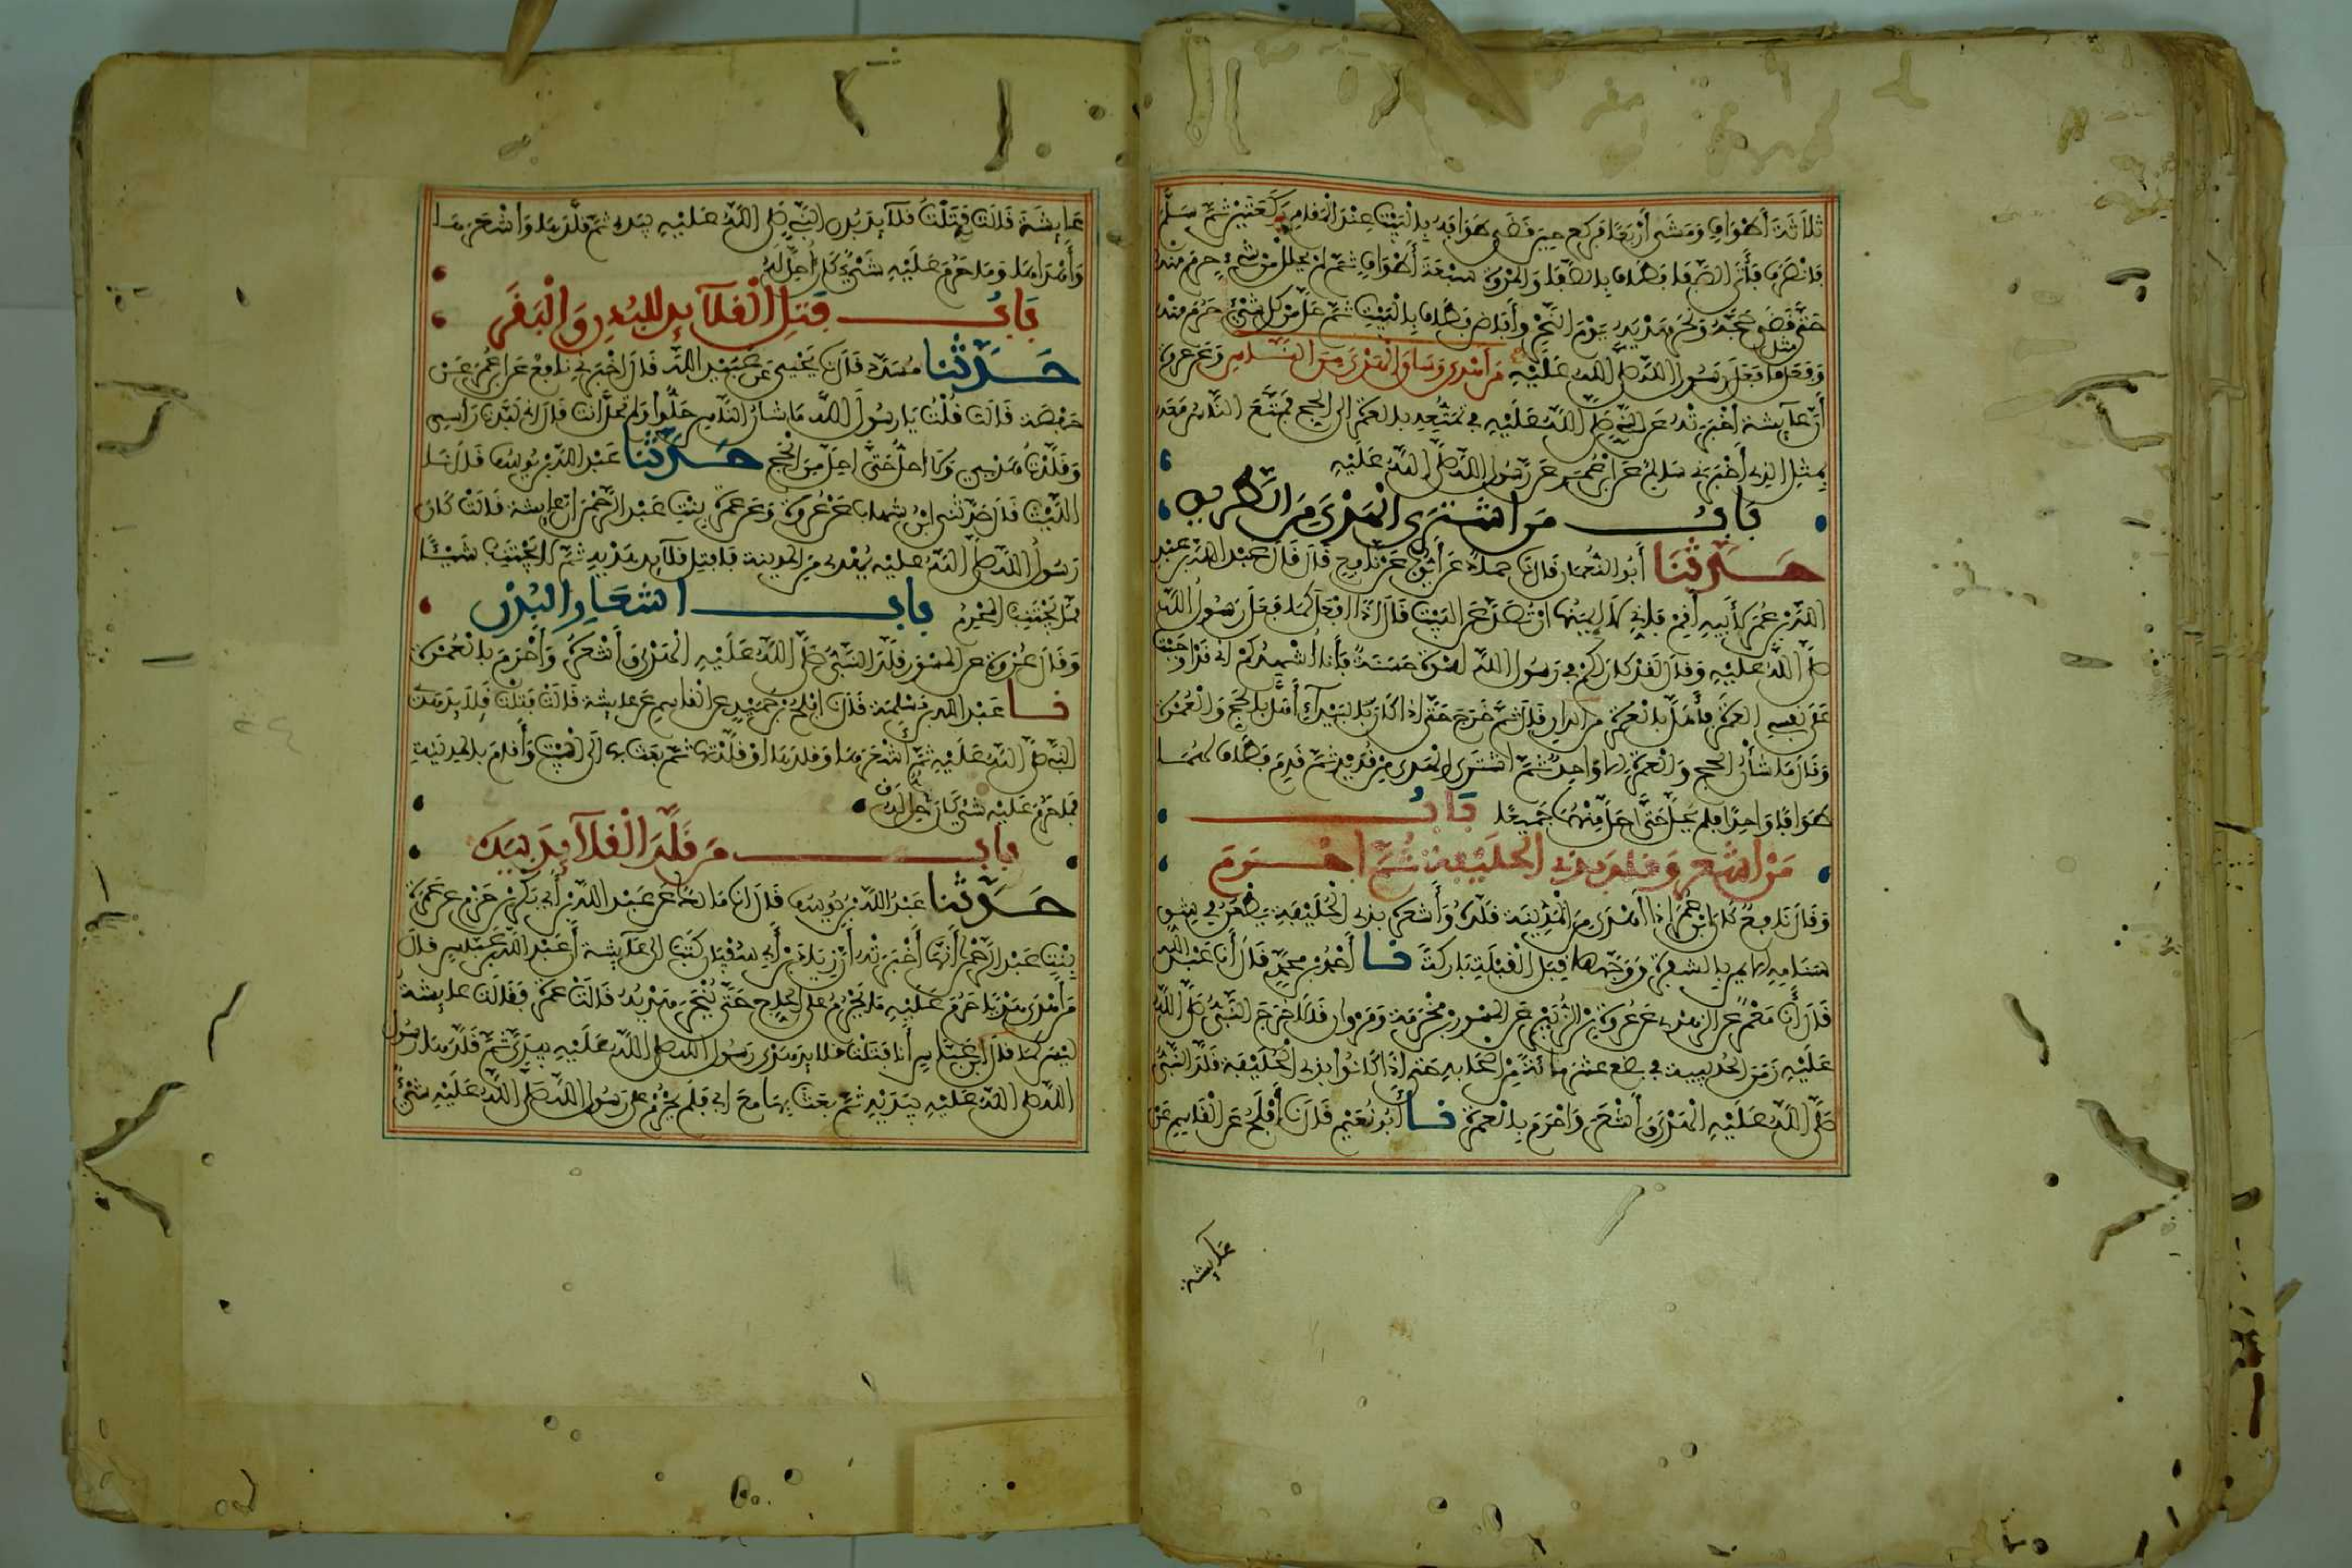 ثَلَاثَةَ أَطْوَافٍ وَمَشَى أَرْبَعًا فَرَكَعَ حِينَ قَضَى طَوَافَهُ بِالْبَيْتِ عِنْدَ الْمَقَامِ رَكْعَتَيْنِ ثُمَّ سَلَّمَ
فَانْصَرَفَ فَأَتَى الصَّفَا فَطَافَ بِالصَّفَا وَالْمَرْوَةِ سَبْعَةَ أَطْوَافٍ ثُمَّ لَمْ يَحْلِلْ مِنْ شَيْءٍ حَرُمَ مِنْهُ
حَتَّى قَضَى حَجَّهُ وَنَحَرَ هَدْيَهُ يَوْمَ النَّحْرِ وَأَفَاضَ فَطَافَ بِالْبَيْتِ ثُمَّ حَلَّ مِنْ كُلِّ شَيْءٍ حَرُمَ مِنْهُ
وَفَعَلَ مثل مَا فَعَلَ رَسُولُ اللَّهِ صَلَّى اللَّهُ عَلَيْهِ مَنْ أَهْدَى وَسَاقَ الْهَدْيَ مِنَ النَّاسِ وَعَنْ عُرْوَةَ
أَنَّ عَائِشَةَ أَخْبَرَتْهُ عَنِ النَّبِيِّ صَلَّى اللَّهُ عَلَيْهِ فِي تَمَتُّعِهِ بِالْعُمْرَةِ إِلَى الْحَجِّ فَتَمَتَّعَ النَّاسُ مَعَهُ
بِمِثْلِ الَّذِي أَخْبَرَنِي سَالِمٌ عَنِ ابْنِ عُمَرَ عَنْ رَسُولِ اللَّهِ صَلَّى اللَّهُ عَلَيْهِ
بَابُ مَنِ اشْتَرَى الْهَدْيَ مِنَ الطَّرِيقِ
حَدَّثَنَا أَبُو النُّعْمَانِ قَالَ نَا حَمَّادٌ عَنْ أَيُّوبَ عَنْ نَافِعٍ قَالَ قَالَ عَبْدُ اللَّهِ بْنُ عَبْدِ
اللَّهِ بْنِ عُمَرَ لِأَبِيهِ أَقِمْ فَإِنِّي لَا آمَنُهَا أَنْ تُصَدَّ عَنِ الْبَيْتِ قَالَ إِذًا أَفْعَلَ كَمَا فَعَلَ رَسُولُ اللَّهِ
صَلَّى اللَّهُ عَلَيْهِ وَقَالَ لَقَدْ كَانَ لَكُمْ فِي رَسُولِ اللَّهِ إِسْوَةٌ حَسَنَةٌ فَأَنَا أُشْهِدُكُمْ أَنِّي قَدْ أَوْجَبْتُ
عَلَى نَفْسِي الْعُمْرَةَ فَأَهَلَّ بِالْعُمْرَةِ مِنَ الدَّارِ قَالَ ثُمَّ خَرَجَ حَتَّى إِذَا كَانَ بِالْبَيْدَاءِ أَهَلَّ بِالْحَجِّ وَالْعُمْرَةِ
وَقَالَ مَا شَأْنُ الْحَجِّ وَالْعُمْرَةِ إِلَّا وَاحِدٌ ثُمَّ اشْتَرَى الْهَدْيَ مِنْ قُدَيْدٍ ثُمَّ قَدِمَ فَطَافَ لَهُمَا
طَوَافًا وَاحِدًا فَلَمْ يَحِلَّ حَتَّى أَحَلَّ مِنْهُمَا جَمِيعًا بَابُ
مَنْ أَشْعَرَ وَقَلَّدَ بِذِي الْحُلَيْفَةِ ثُمَّ أَحْرَمَ
وَقَالَ نَافِعٌ كَانَ ابْنُ عُمَرَ إِذَا أَهْدَى مِنَ الْمَدِينَةِ قَلَّدَهُ وَأَشْعَرَهُ بِذِي الْحُلَيْفَةِ يَطْعَنُ فِي شِقِّ
سَنَامِهِ الْأَيْمَنِ بِالشَّفْرَةِ وَوَجْهُهَا قِبَلَ الْقِبْلَةِ بَارِكَةً نا أَحْمَدُ بْنُ مُحَمَّدٍ قَالَ أَنَا عَبْدُ اللَّهِ
قَالَ أَنَا مَعْمَرٌ عَنِ الزُّهْرِيِّ عَنْ عُرْوَةَ بْنِ الزُّبَيْرِ عَنِ الْمِسْوَرِ بْنِ مَخْرَمَةَ وَمَرْوَانَ قَالَا خَرَجَ النَّبِيُّ صَلَّى اللَّهُ
عَلَيْهِ زَمَنَ الْحُدَيْبِيَةِ فِي بِضْعَ عَشْرَةَ مِائَةً مِنْ أَصْحَابِهِ حَتَّى إِذَا كَانُوا بِذِي الْحُلَيْفَةِ قَلَّدَ النَّبِيُّ
صَلَّى اللَّهُ عَلَيْهِ الْهَدْيَ وَأَشْعَرَ وَأَحْرَمَ بِالْعُمْرَةِ نا أَبُو نُعَيْمٍ قَالَ نَا أَفْلَحُ عَنِ الْقَاسِمِ عَنْ
عَائِشَةَ
عَائِشَةَ قَالَتْ فَتَلْتُ قَلَائِدَ بُدْنِ النَّبِيِّ صَلَّى اللَّهُ عَلَيْهِ بِيَدِي ثُمَّ قَلَّدَهَا وَأَشْعَرَهَا
وَأَهْدَاهَا وَمَا حَرُمَ عَلَيْهِ شَيْءٌ كَانَ أُحِلَّ لَهُ
بَابُ فَتْلِ الْقَلَائِدِ لِلْبُدْنِ وَالْبَقَرِ
حَدَّثَنَا مُسَدَّدٌ قَالَ نَا يَحْيَى عَنْ عُبَيْدِ اللَّهِ قَالَ أَخْبَرَنِي نَافِعٌ عَنِ ابْنِ عُمَرَ عَنْ
حَفْصَةَ قَالَتْ قُلْتُ يَا رَسُولَ اللَّهِ مَا شَأْنُ النَّاسِ حَلُّوا وَلَمْ تَحِلَّ أَنْتَ قَالَ إِنِّي لَبَّدْتُ رَأْسِي
وَقَلَّدْتُ هَدْيِي وَلَا أُحِلُّ حَتَّى أُحِلَّ مِنَ الْحَجِّ حَدَّثَنَا عَبْدُ اللَّهِ بْنُ يُوسُفَ قَالَ نَا
اللَّيْثُ قَالَ حَدَّثَنِي ابْنُ شِهَابٍ عَنْ عُرْوَةَ وَعَنْ عَمْرَةَ بِنْتِ عَبْدِ الرَّحْمَنِ أَنَّ عَائِشَةَ قَالَتْ كَانَ
رَسُولُ اللَّهِ صَلَّى اللَّهُ عَلَيْهِ يُهْدِي مِنَ الْمَدِينَةِ فَأَفْتِلُ قَلَائِدَ هَدْيِهِ ثُمَّ لَا يَجْتَنِبُ شَيْئًا
مِمَّا يَجْتَنِبُ الْمُحْرِمُ بَابُ إِشْعَارِ الْبُدْنِ
وَقَالَ عُرْوَةُ عَنِ الْمِسْوَرِ قَلَّدَ النَّبِيُّ صَلَّى اللَّهُ عَلَيْهِ الْهَدْيَ وَأَشْعَرَهُ وَأَحْرَمَ بِالْعُمْرَةِ
نا عَبْدُ اللَّهِ بْنُ مَسْلَمَةَ قَالَ نَا أَفْلَحُ بْنُ حُمَيْدٍ عَنِ الْقَاسِمِ عَنْ عَائِشَةَ قَالَتْ فَتَلْتُ قَلَائِدَ هَدْيِ
النَّبِيِّ صَلَّى اللَّهُ عَلَيْهِ ثُمَّ أَشْعَرَهَا وَقَلَّدَهَا أَوْ قَلَّدْتُهَا ثُمَّ بَعَثَ بِهَا إِلَى الْبَيْتِ وَأَقَامَ بِالْمَدِينَةِ
فَمَا حَرُمَ عَلَيْهِ شَيْءٌ كَانَ لَهُ حِلٌّ
بَابُ مَنْ قَلَّدَ الْقَلَائِدَ بِيَدِهِ
حَدَّثَنَا عَبْدُ اللَّهِ بْنُ يُوسُفَ قَالَ أَنَا مَالِكٌ عَنْ عَبْدِ اللَّهِ بْنِ أَبِي بَكْرِ بْنِ حَزْمٍ عَنْ عَمْرَةَ
بِنْتِ عَبْدِ الرَّحْمَنِ أَنَّهَا أَخْبَرَتْهُ أَنَّ زِيَادَ بْنَ أَبِي سُفْيَانَ كَتَبَ إِلَى عَائِشَةَ أَنَّ عَبْدَ اللَّهِ بْنَ عَبَّاسٍ قَالَ
مَنْ أَهْدَى هَدْيًا حَرُمَ عَلَيْهِ مَا يَحْرُمُ عَلَى الْحَاجِّ حَتَّى يُنْحَرَ هَدْيُهُ قَالَتْ عَمْرَةُ فَقَالَتْ عَائِشَةُ
لَيْسَ كَمَا قَالَ ابْنُ عَبَّاسٍ أَنَا فَتَلْتُ قَلَائِدَ هَدْيِ رَسُولِ اللَّهِ صَلَّى اللَّهُ عَلَيْهِ بِيَدَيَّ ثُمَّ قَلَّدَهَا رَسُولُ
اللَّهِ صَلَّى اللَّهُ عَلَيْهِ بِيَدَيْهِ ثُمَّ بَعَثَ بِهَا مَعَ أَبِي فَلَمْ يَحْرُمْ عَلَى رَسُولِ اللَّهِ صَلَّى اللَّهُ عَلَيْهِ شَيْءٌ